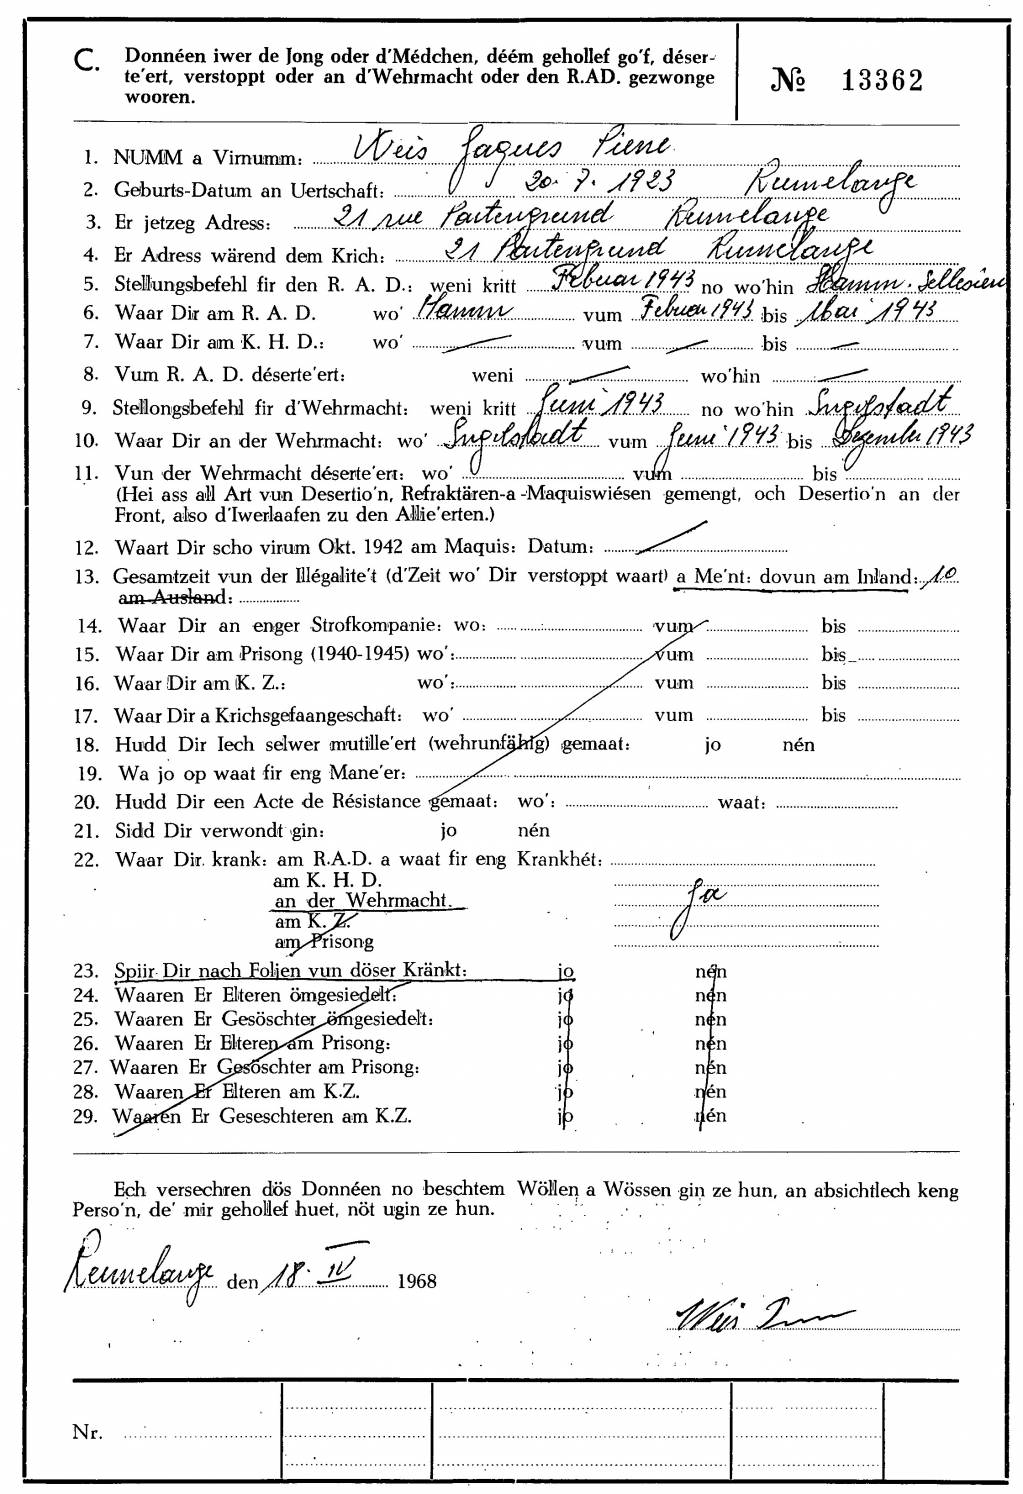 C. Donnéen iwer de Jong oder d'Médchen, déém gehollef go'f, déser-
te'ert, verstoppt oder an d'Wehrmacht oder den R.AD. gezwonge
wooren.
№ 13362
1. NUMM a Virnumm: Weis Jaques Pierre
2. Geburts-Datum an Uertschaft: 20. 7. 1923 Rumelange
3. Er jetzeg Adress: 21 rue Partengrund Rumelange
4. Er Adress wärend dem Krich: 21 Partengrund Rumelange
5. Stellungsbefehl fir den R. A. D.: weni kritt Februar 1943 no wo'hin Hamm. Sellesien
6. Waar Dir am R. A. D. wo' Hamm vum Februar 1943 bis Mai 1943
7. Waar Dir am K. H. D.: wo' — vum — bis —
8. Vum R. A. D. déserte'ert: weni — wo'hin —
9. Stellongsbefehl fir d'Wehrmacht: weni kritt Juni 1943 no wo'hin Ingolstadt
10. Waar Dir an der Wehrmacht: wo' Ingolstadt vum Juni 1943 bis Dezember 1943
11. Vun der Wehrmacht déserte'ert: wo' vum bis
(Hei ass all Art vun Desertio'n, Refraktären-a -Maquiswiésen gemengt, och Desertio'n an der
Front, also d'Iwerlaafen zu den Allie'erten.)
12. Waart Dir scho virum Okt. 1942 am Maquis: Datum:
13. Gesamtzeit vun der Illégalite't (d'Zeit wo' Dir verstoppt waart) a Me'nt: dovun am Inland: 10
am Ausland:
14. Waar Dir an enger Strofkompanie: wo: vum bis
15. Waar Dir am Prisong (1940-1945) wo': vum bis
16. Waar Dir am K. Z.: wo': vum bis
17. Waar Dir a Krichsgefaangeschaft: wo' vum bis
18. Hudd Dir Iech selwer mutille'ert (wehrunfähig) gemaat: jo nén
19. Wa jo op waat fir eng Mane'er:
20. Hudd Dir een Acte de Résistance gemaat: wo': waat:
21. Sidd Dir verwondt gin: jo nén
22. Waar Dir krank: am R.A.D. a waat fir eng Krankhét:
am K. H. D.
an der Wehrmacht. Ja
am K. Z.
am Prisong
23. Spiir Dir nach Folien vun döser Kränkt: jo nén
24. Waaren Er Elteren ömgesiedelt: jo nén
25. Waaren Er Gesöschter ömgesiedelt: jo nén
26. Waaren Er Elteren am Prisong: jo nén
27. Waaren Er Gesöschter am Prisong: jo nén
28. Waaren Er Elteren am K.Z. jo nén
29. Waaren Er Geseschteren am K.Z. jo nén
Ech versechren dös Donnéen no beschtem Wöllen a Wössen gin ze hun, an absichtlech keng
Perso'n, de' mir gehollef huet, nöt ugin ze hun.
Rumelange den 18. IV 1968
Weis
Nr.